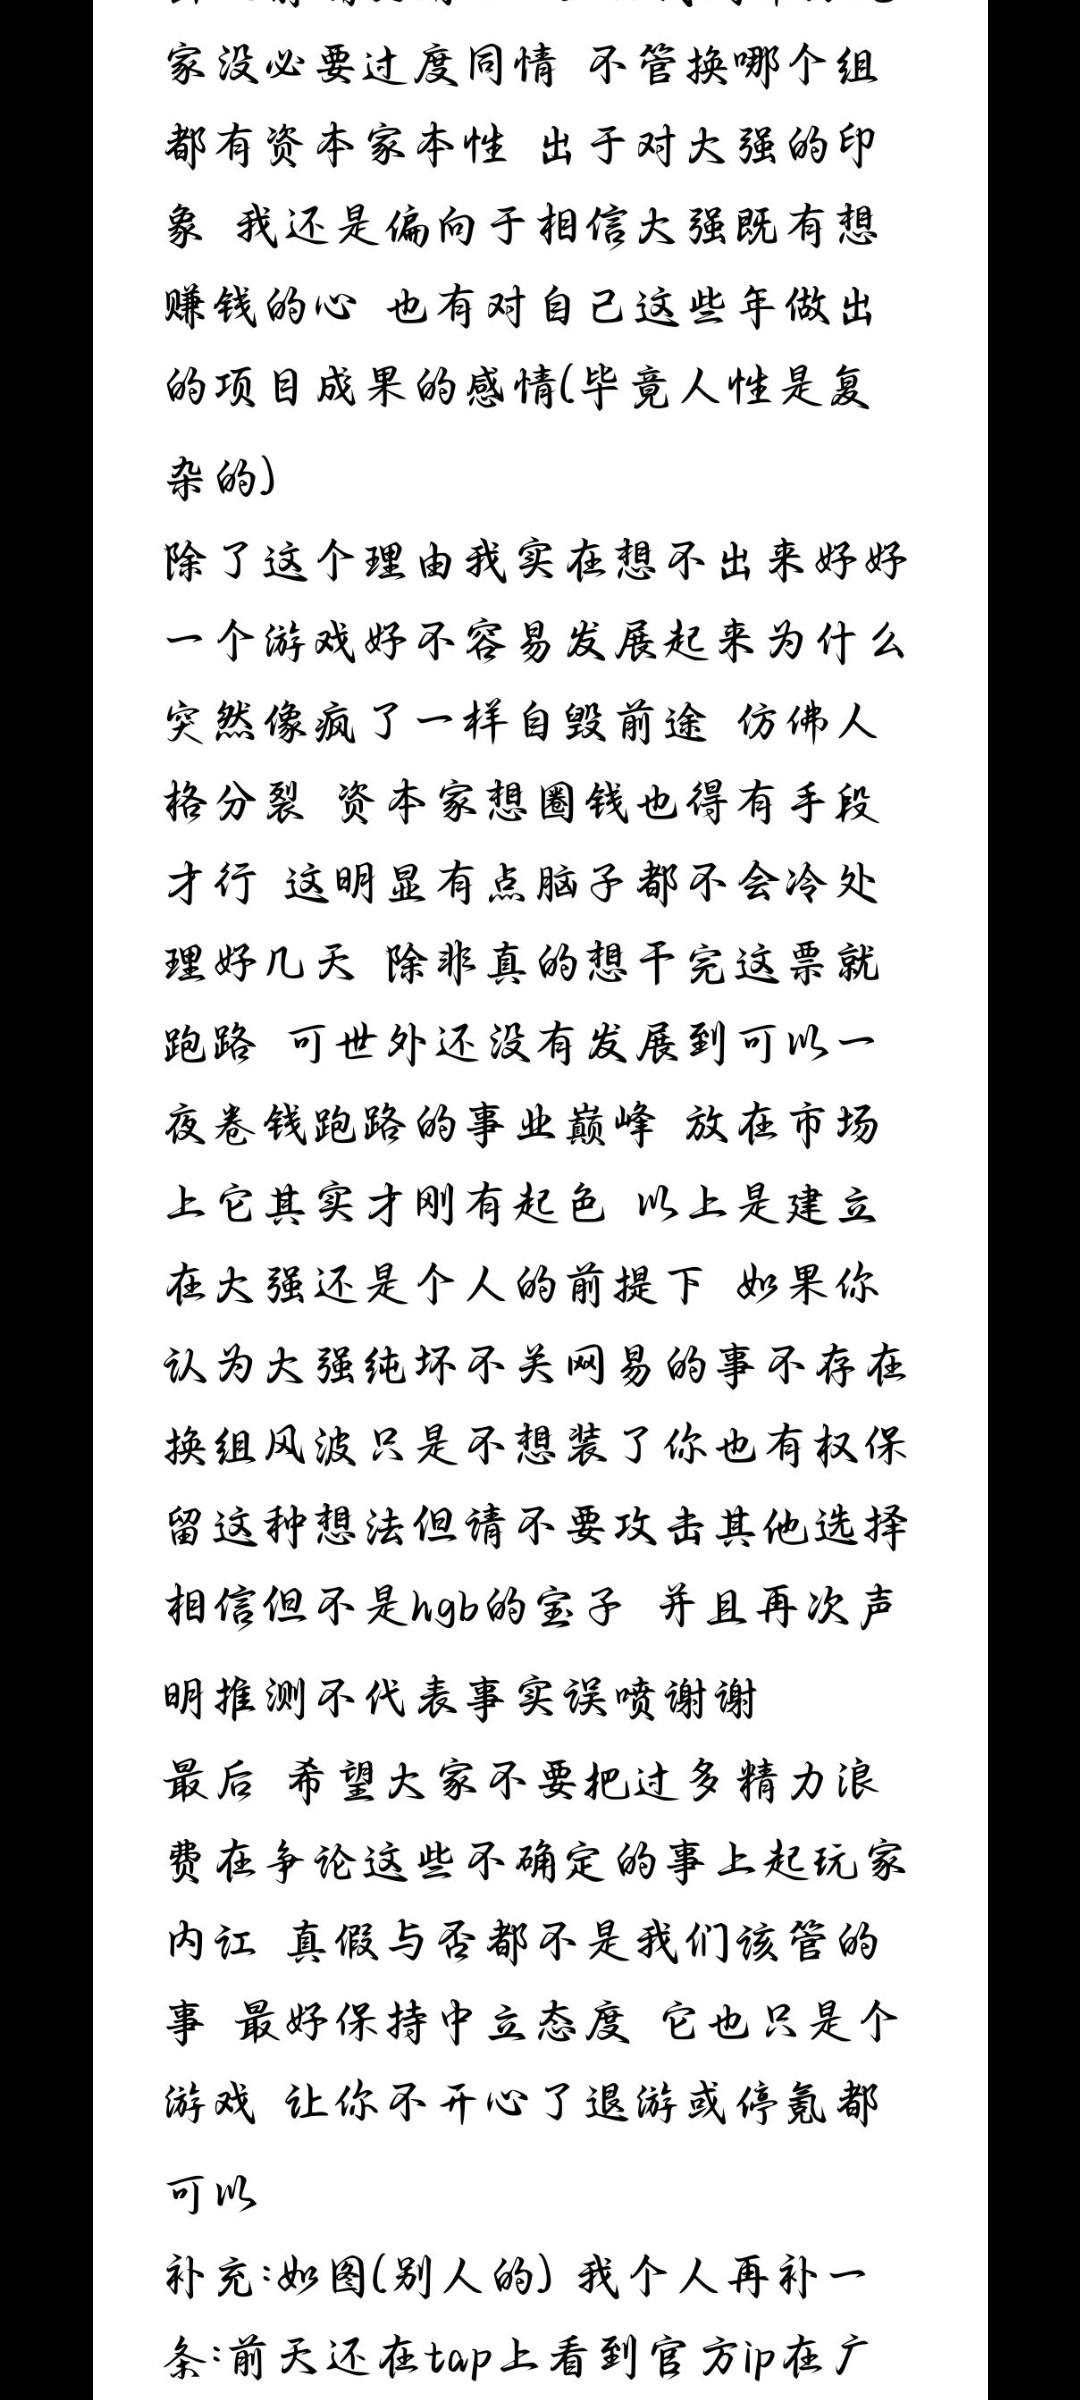 家没必要过度同情 不管换哪个组
都有资本家本性 出于对大强的印
象 我还是偏向于相信大强既有想
赚钱的心 也有对自己这些年做出
的项目成果的感情(毕竟人性是复
杂的)
除了这个理由我实在想不出来好好
一个游戏好不容易发展起来为什么
突然像疯了一样自毁前途 仿佛人
格分裂 资本家想圈钱也得有手段
才行 这明显有点脑子都不会冷处
理好几天 除非真的想干完这票就
跑路 可世外还没有发展到可以一
夜卷钱跑路的事业巅峰 放在市场
上它其实才刚有起色 以上是建立
在大强还是个人的前提下 如果你
认为大强纯坏不关网易的事不存在
换组风波只是不想装了你也有权保
留这种想法但请不要攻击其他选择
相信但不是hgb的宝子 并且再次声
明推测不代表事实误喷谢谢
最后 希望大家不要把过多精力浪
费在争论这些不确定的事上起玩家
内讧 真假与否都不是我们该管的
事 最好保持中立态度 它也只是个
游戏 让你不开心了退游或停氪都
可以
补充:如图(别人的) 我个人再补一
条:前天还在tap上看到官方ip在广